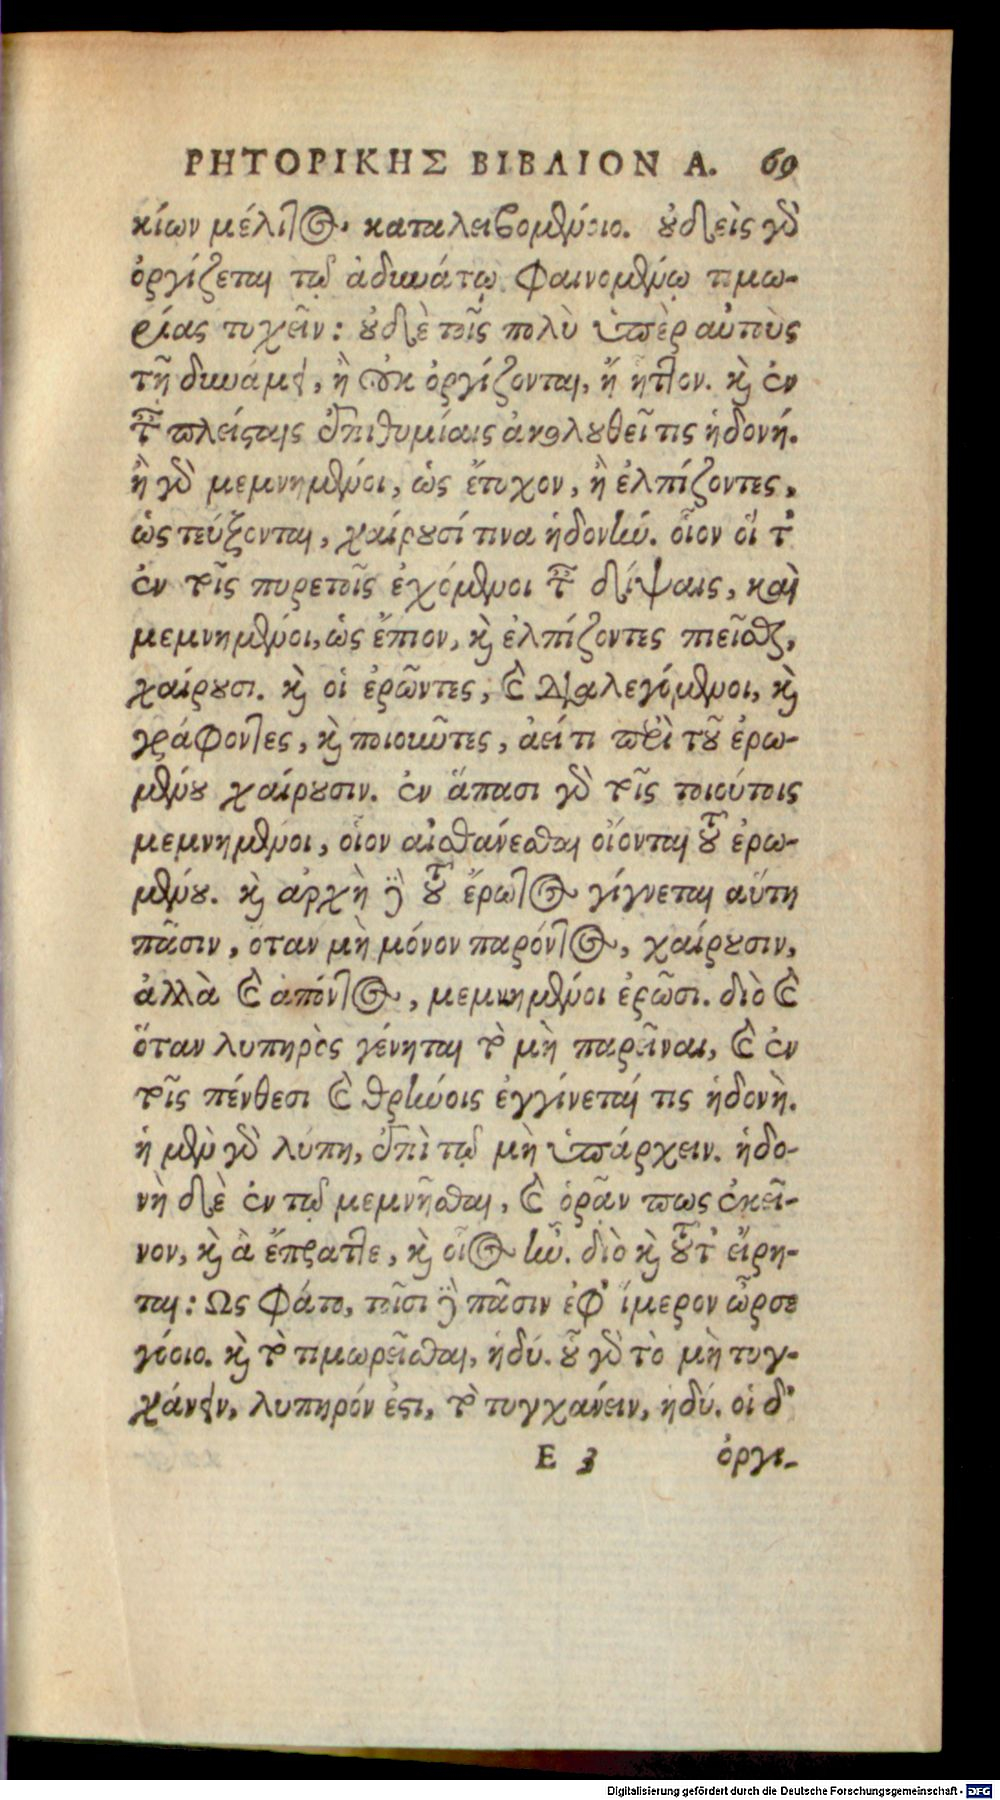 ΡΗΤΟΡΙΚΗΣ ΒΙΒΛΙΟΝ Α. 69
κίων μέλιτος, καταλειβομένοιο. οὐδεὶς γὰρ
ὀργίζεται τῷ ἀδυνάτῳ φαινομένῳ τιμω-
ρίας τυχεῖν: οὐδὲ τοῖς πολὺ ὑπὲρ αὐτοὺς
τῇ δυνάμει, ἢ οὐκ ὀργίζονται, ἢ ἧττον. καὶ ἐν
ταῖς πλείσταις ἐπιθυμίαις ἀκολουθεῖ τις ἡδονή.
ἢ γὰρ μεμνημένοι, ὡς ἔτυχον, ἢ ἐλπίζοντες,
ὡς τεύξονται, χαίρουσί τινα ἡδονήν. οἷον οἵ τ'
ἐν τοῖς πυρετοῖς ἐχόμενοι ταῖς δίψαις, καὶ
μεμνημένοι, ὡς ἔπιον, καὶ ἐλπίζοντες πιεῖσθαι,
χαίρουσι. καὶ οἱ ἐρῶντες, καὶ διαλεγόμενοι, καὶ
γράφοντες, καὶ ποιοῦντες, ἀεί τι περὶ τοῦ ἐρω-
μένου χαίρουσιν. ἐν ἅπασι γὰρ τοῖς τοιούτοις
μεμνημένοι, οἷον αἰσθάνεσθαι οἴονται τοῦ ἐρω-
μένου. καὶ ἀρχὴ δὲ τοῦ ἔρωτος γίγνεται αὕτη
πᾶσιν, ὅταν μὴ μόνον παρόντος, χαίρουσιν,
ἀλλὰ καὶ ἀπόντος, μεμνημένοι ἐρῶσι. διὸ καὶ
ὅταν λυπηρὸς γένηται τὸ μὴ παρεῖναι, καὶ ἐν
τοῖς πένθεσι καὶ θρήνοις ἐγγίνεταί τις ἡδονὴ.
ἡ μὲν γὰρ λύπη, ἐπὶ τῷ μὴ ὑπάρχειν. ἡδο-
νὴ δὲ ἐν τῷ μεμνῆσθαι, καὶ ὁρᾶν πως ἐκεῖ-
νον, καὶ ἃ ἔπραττε, καὶ οἷος ἦν. διὸ καὶ τοῦτ' εἴρη-
ται: Ως φάτο, τοῖσι δὲ πᾶσιν ἐφ' ἵμερον ὦρσε
γόοιο. καὶ τὸ τιμωρεῖσθαι, ἡδύ. οὗ γὰρ τὸ μὴ τυγ-
χάνειν, λυπηρόν ἐστι, τὸ τυγχάνειν, ἡδύ. οἱ δ'
Ε 3 ὀργι-
Digitalisierung gefördert durch die Deutsche Forschungsgemeinschaft - DFG